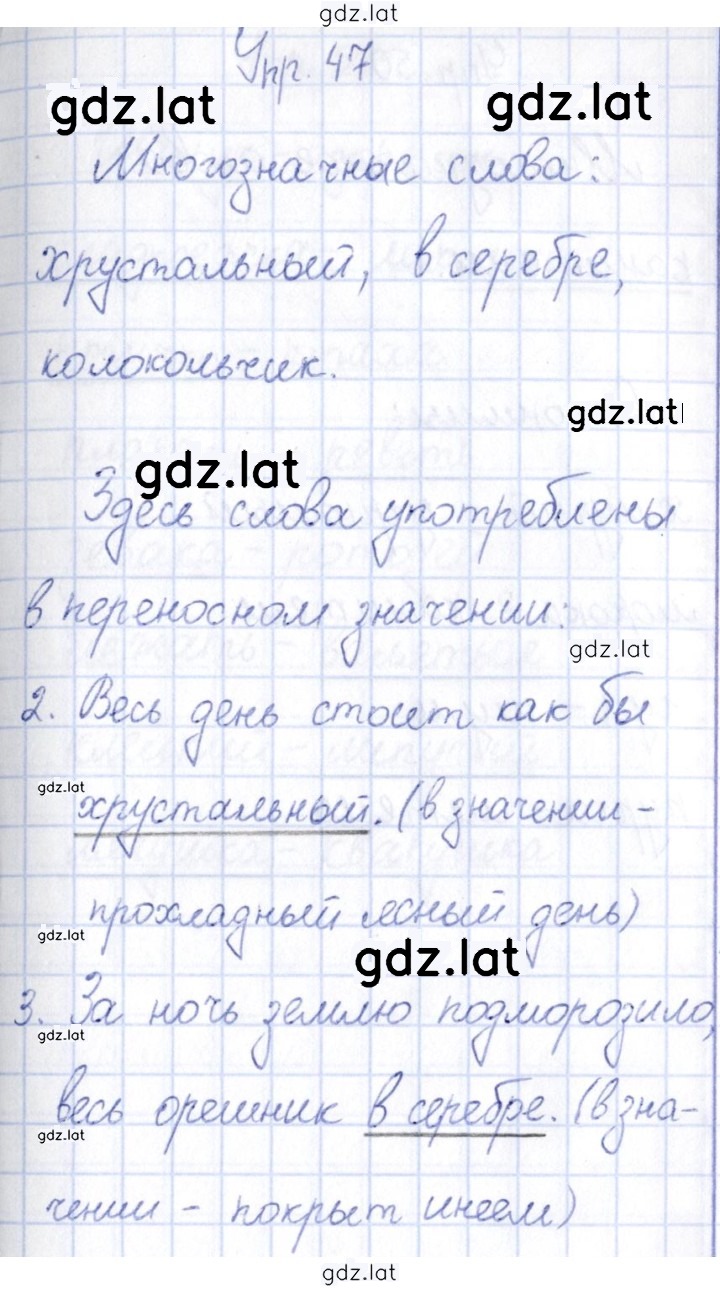 gdz.lat
Упр. 47
gdz.lat
gdz.lat
Многозначные слова:
хрустальный, в серебре,
колокольчик.
gdz.lat
gdz.lat
Здесь слова употреблены
в переносном значении:
gdz.lat
2. Весь день стоит как бы
gdz.lat
хрустальный. (в значении -
прохладный ясный день)
gdz.lat
gdz.lat
3. За ночь землю подморозило,
gdz.lat
весь орешник в серебре. (в зна-
gdz.lat
чении - покрыт инеем)
gdz.lat